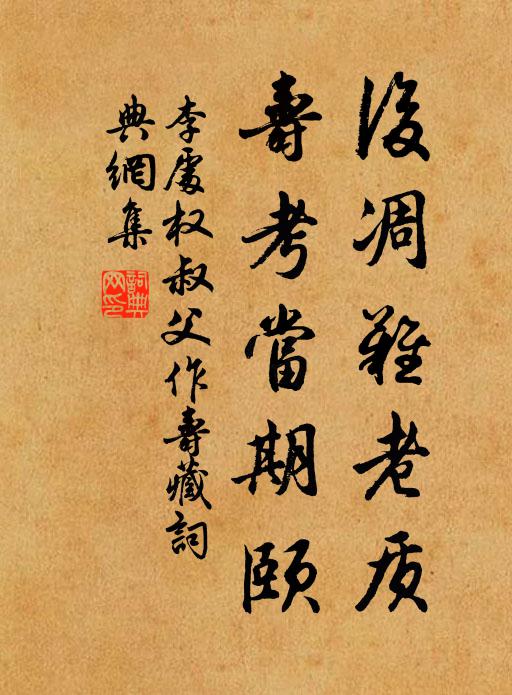 後凋難老质
壽考當期頤
李處权叔父作壽藏詞
典網集
詞典網印